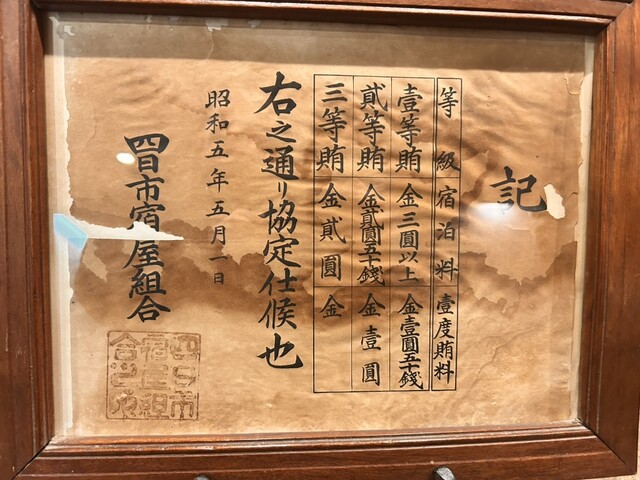 記
等級 宿泊料 壹度賄料
壹等賄 金三圓以上 金壹圓五十錢
貳等賄 金貳圓五十錢 金壹圓
三等賄 金貳圓 金
右之通り協定仕候也
昭和五年五月一日
四日市宿屋組合
四日市
宿屋組
合之印